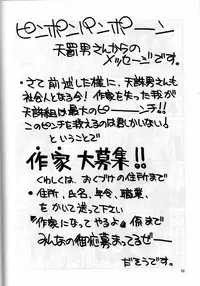 ピンポンパンポーン
天罰男さんからの
メッセージです。
・さて前述した様に、天誅男さんも
社会人となる今！作家を失った我が
天誅組は最大のピーーンチ!!
このピンチを救えるのは君しかいない！
ということで
作家大募集!!
くわしくは、おくづけの住所まで
・住所、氏名、年令、職業、
をかいて送って下さい
『作家になってやるよ』係まで
みんなの個応募まってるぜー
だそうです。